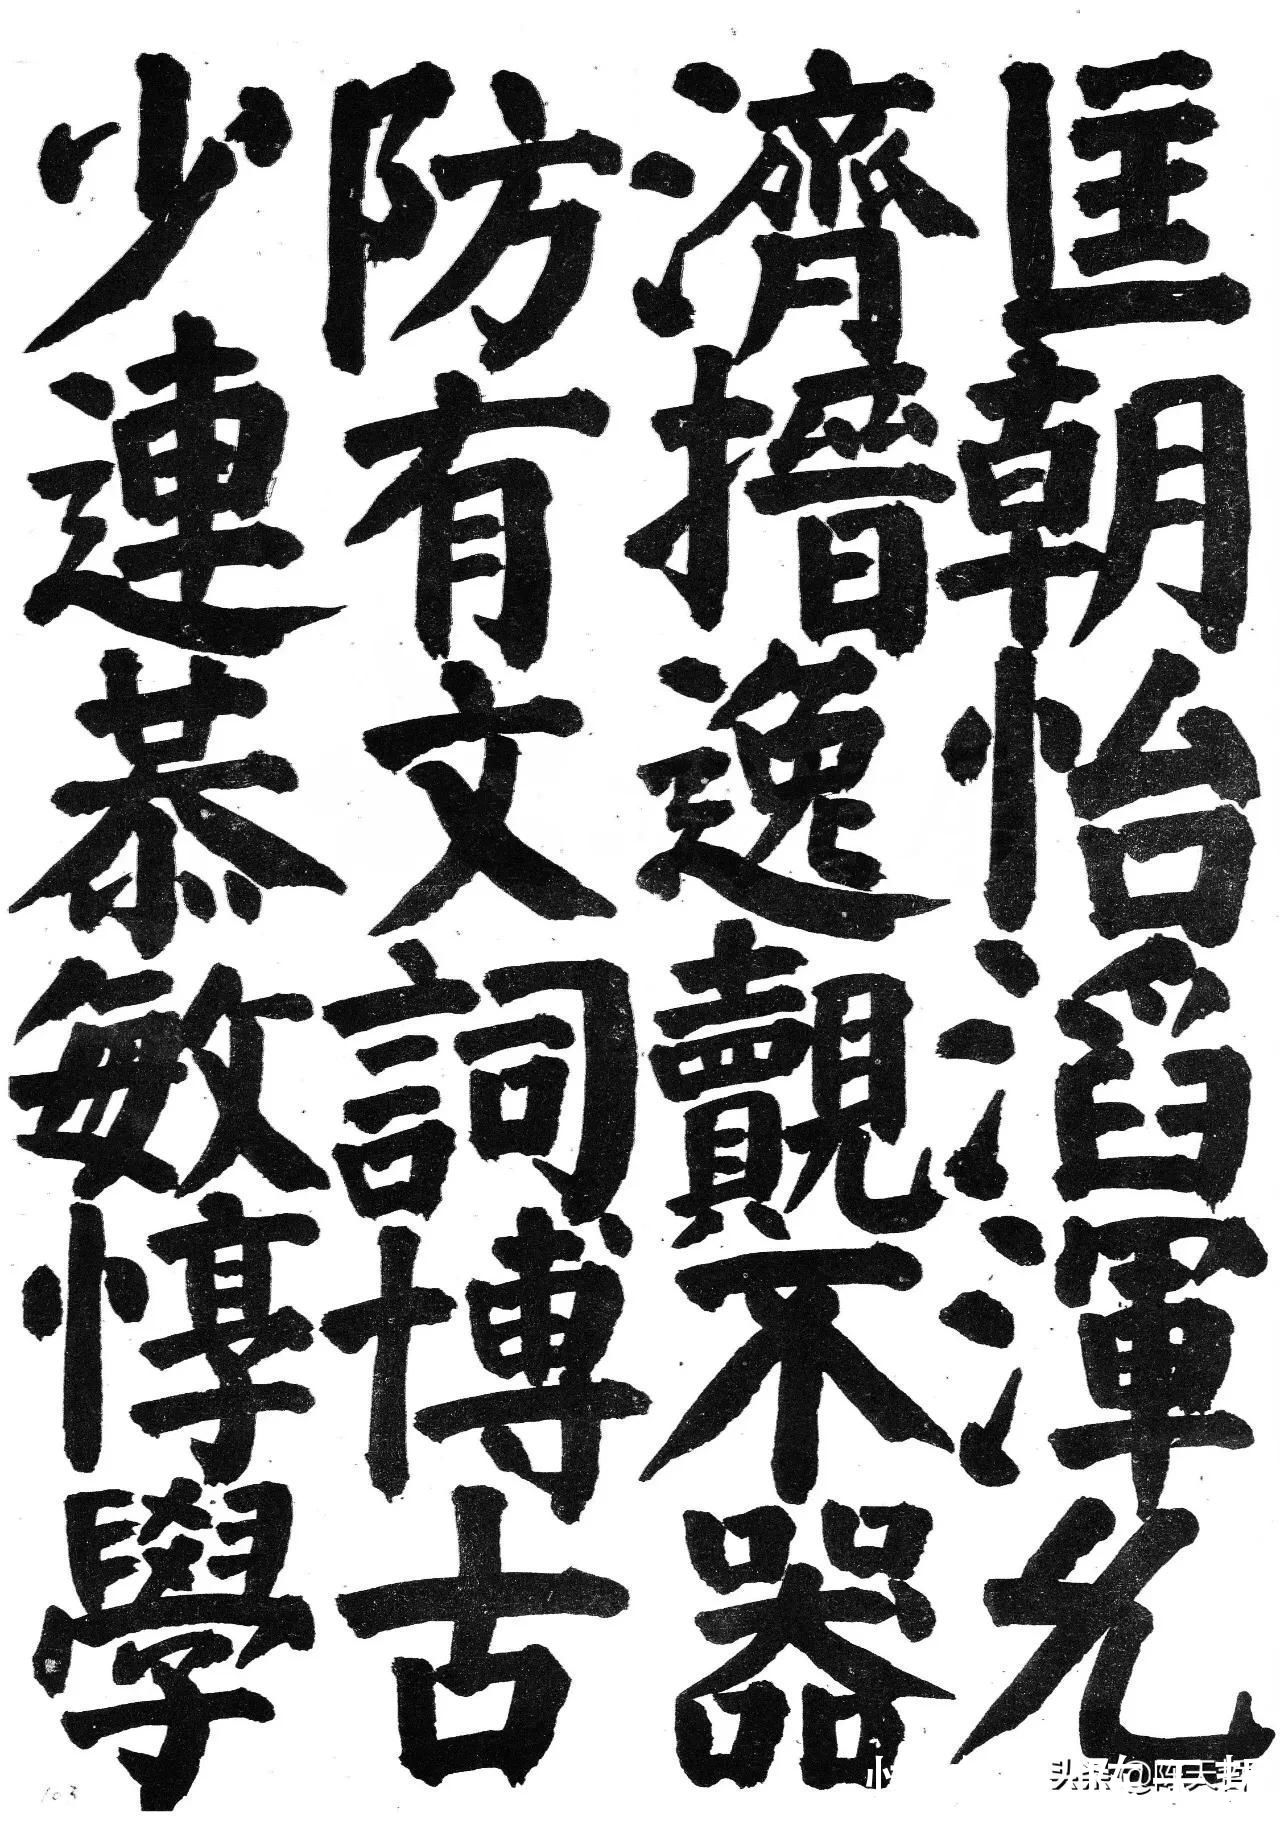 匡朝怡滔渾允
濟搢逸覿不器
防有文詞博古
少連恭敏惇學
103